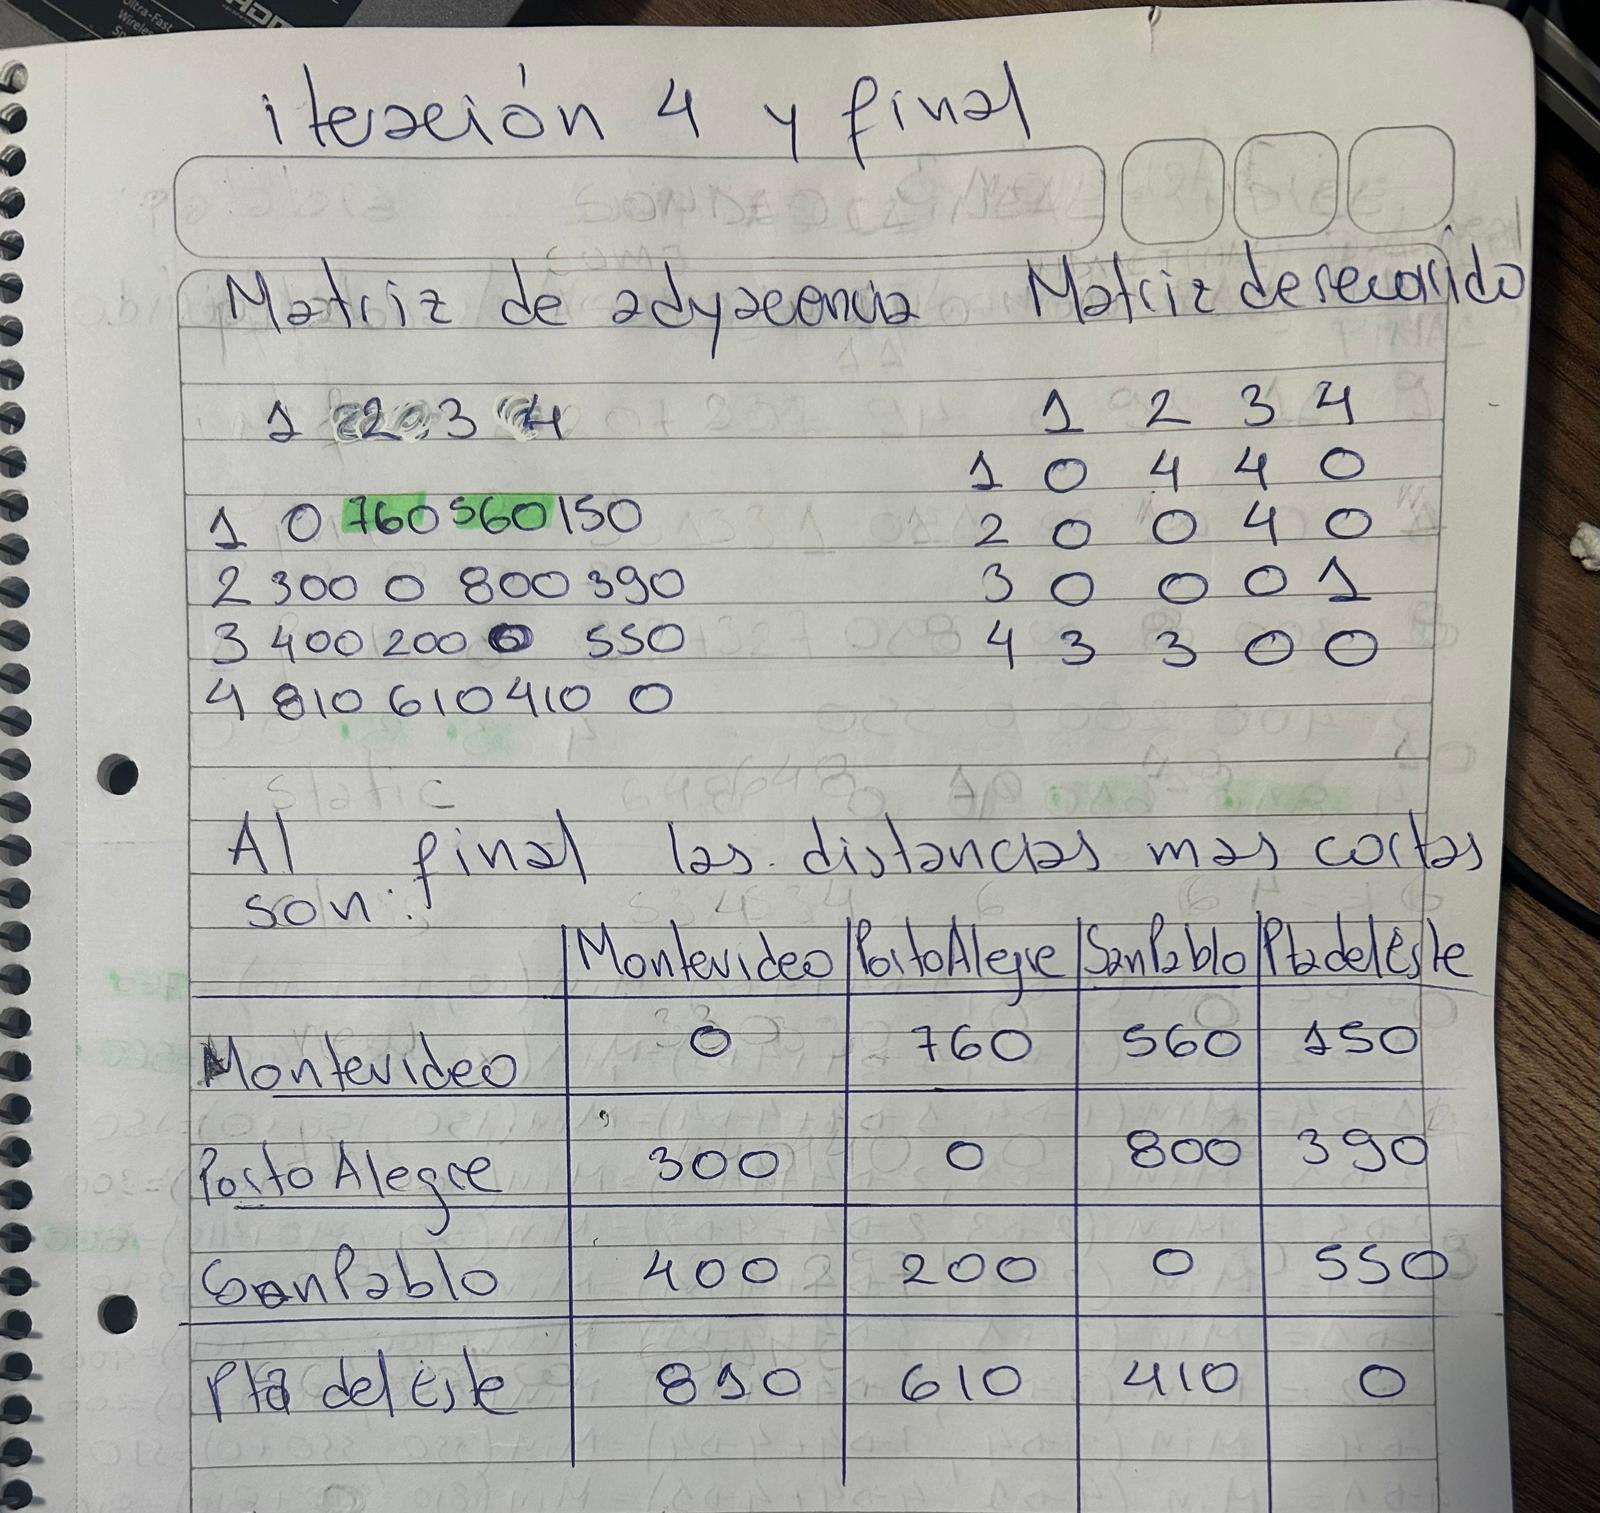 iteración 4 y final
Matriz de adyacencia Matriz de recorrido
1 2 3 4
1 0 760 560 150
2 300 0 800 390
3 400 200 0 550
4 810 610 410 0
1 2 3 4
1 0 4 4 0
2 0 0 4 0
3 0 0 0 1
4 3 3 0 0
Al final las distancias mas cortas
son:
Montevideo Porto Alegre San Pablo Pta del Este
Montevideo 0 760 560 150
Porto Alegre 300 0 800 390
San Pablo 400 200 0 550
Pta del este 810 610 410 0